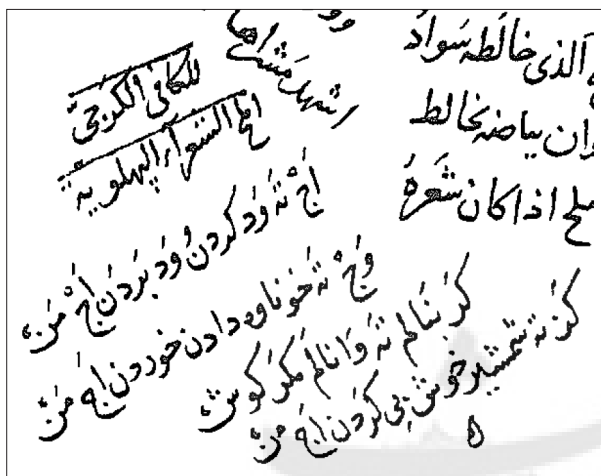 الذى خالطه سواد
ان بياضه يخالط
ملح اذا كان شعره
اشهد مشدها
للكافى الكرجى
املح الشعراء الپهلوية
اَجْ تَه وَد كردن وُ وَد بَردن اَجْ مَن
وَجْ تَه خونا وه دادن خوردن اجَ مَن
كَر بنالم تَه وَانالم مَكر كوش
كَر ته شمشير خوش بى كردن اجَ من
ه